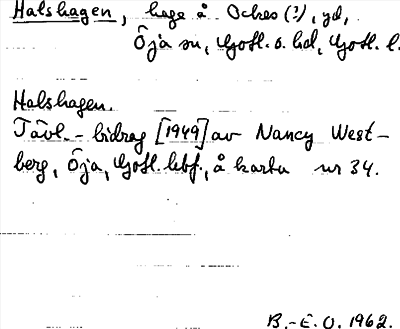 Halshagen, hage å Ockes (?), gd,
Öja sn, Gotl. s. hd, Gotl. l.
Halshagen.
Tävl.-bidrag [1949] av Nancy West-
berg, Öja, Gotl. lebf., å karta nr 34.
B.-E. O. 1962.